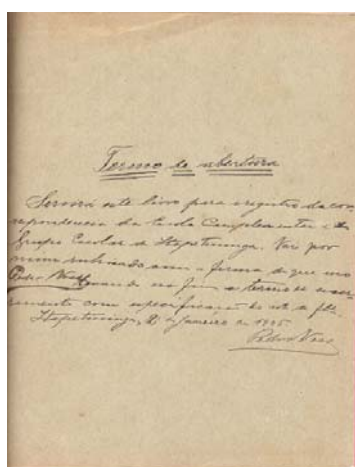 Termo de abertura
Servirá este livro para registro da cor
respondencia da Escola Complementar e do
Grupo Escolar de Itapetininga. Vai por
mim rubricado com a firma de que uso
Pedro Voss, no fim o termo de encer
ramento com especificação de
Itapetininga, de Janeiro de 1905
Pedro Voss